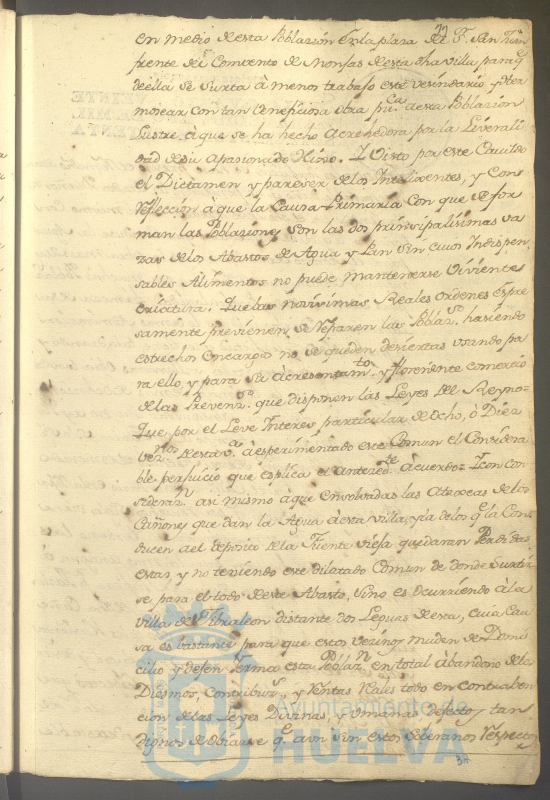 77
en medio de esta Poblazion En la plaza de Sr. San Juan
frente del Comvento de Monjas de esta dha villa para q
de ella se surta à menos trabajo este vesindario y Her
mosear con tan beneficiosa obra pu.ca a esta Poblazion
Lustre à que se ha hecho Acrehedora por la Leverali
dad de su apasionado Hijo. I Visto por este Cavildo
el Dictamen y pareser de los Intelixentes, y Cons
Reflección à que la Causa Primaria con que se for
man las Poblaziones son las dos prinsipalisimas va
zas de los Abastos de Agua y Pan sin cuios Indispen
sables Alimentos no puede mantenerse Viviente
criatura. Que las novisimas Reales ordenes espre
samente previenen se Reparen las Poblaz.s hasiendo
estrechos encargos no se queden desiertas usando pa
ra ello, y para su acresentam.to y floreciente comersio
de las Prevenz.s que disponen las Leyes del Reyno=
Que por el Leve Interes particular de ocho, ò Diez
vez.nos de esta v.a à esperimentado este Comun el Considera
ble perjuicio que esplica el antered.te àcuerdo= I con con
sideraz.n asi mismo à que ensolvadas las Atarxeas de los
Cañones que dan la Agua à esta villa, y la de los q.e la Con
ducen a el deposito de la Fuente vieja quedaran Perdidas
estas, y no teniendo este dilatado Comun de donde surtir
se para el todo de este Abasto, sino es ocurriendo à la
villa de Jibraleon distante dos Leguas de esta, cuia Cau
sa es bastante para que estos vezinos muden de Domi
cilio y dejen Yerma esta Poblaz.n en total àbandono de los
Diesmos, Contribuz.s, y Rentas Reales todo en contraben
cion de las Leyes Divinas, y umanas defecto, tan
dignos de obiarse q.e aun sin estos soberanos Respectos
Ayuntamiento de
HUELVA